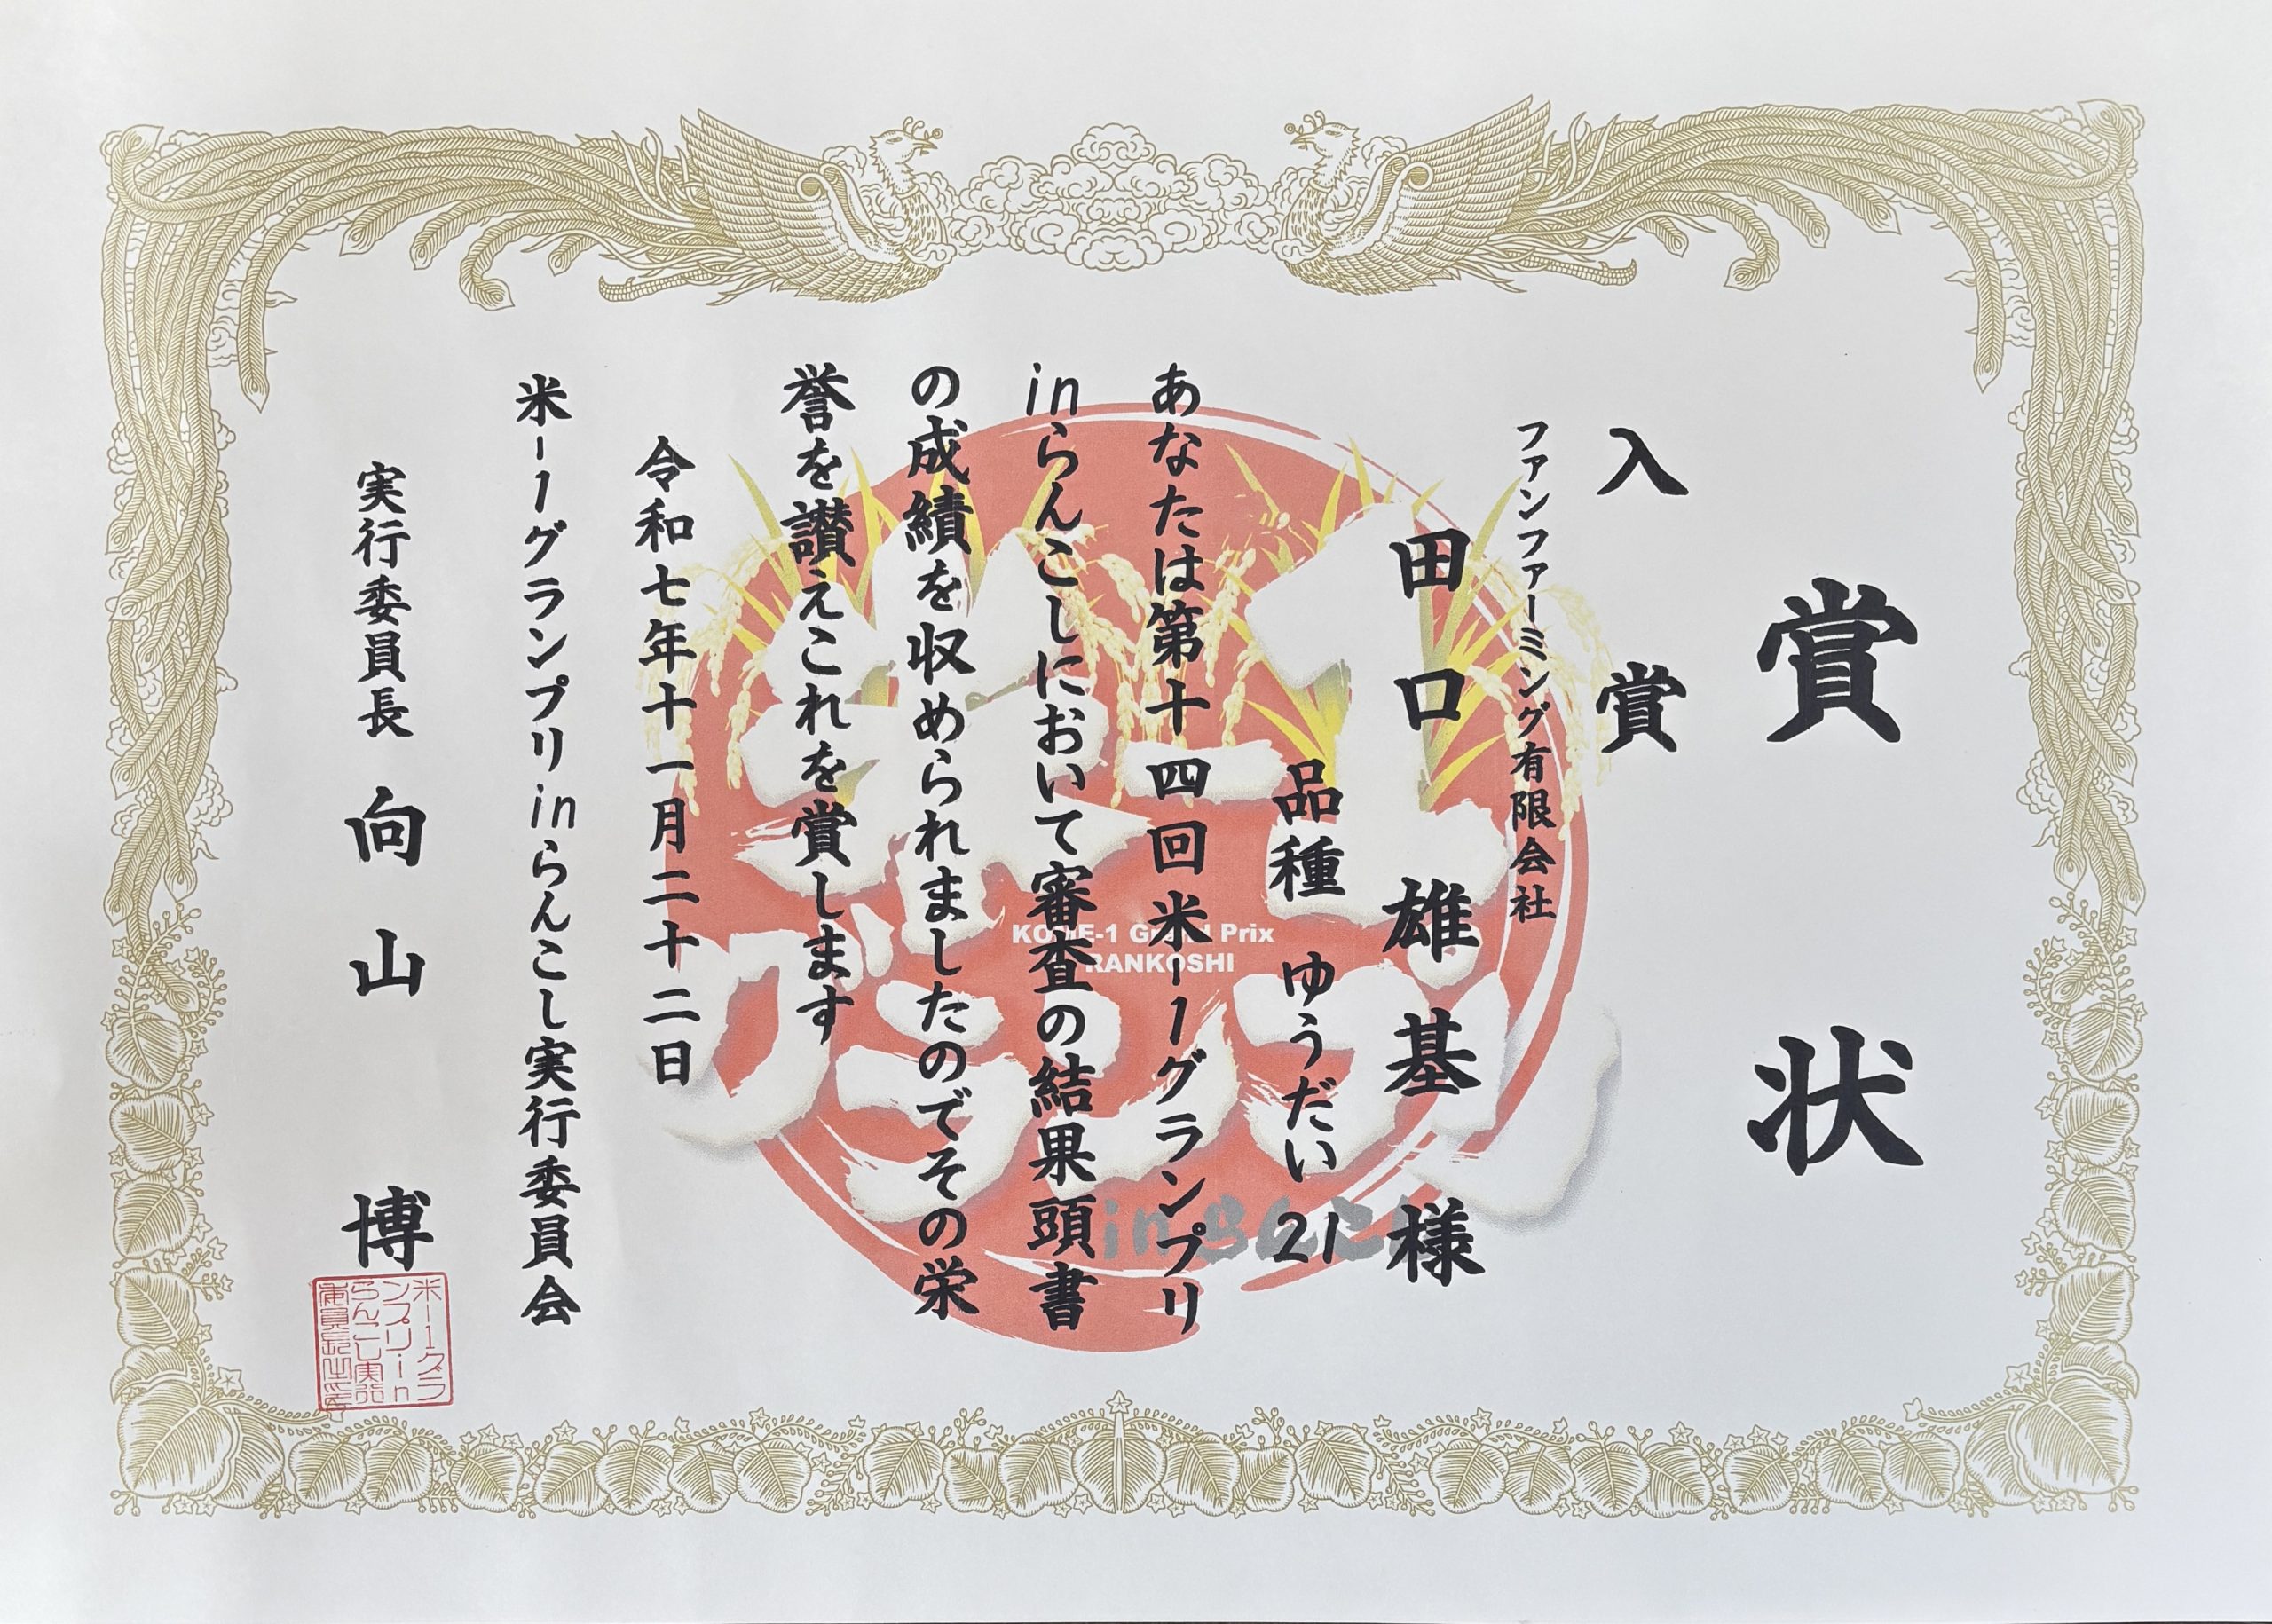 賞状
入賞
ファンファーミング有限会社
田口雄基様
品種 ゆうだい21
あなたは第十四回米-1グランプリ
inらんこしにおいて審査の結果頭書
の成績を収められましたのでその栄
誉を讃えこれを賞します
令和七年十一月二十二日
米-1グランプリinらんこし実行委員会
実行委員長 向山 博
米-1グラ
ンプリin
らんこし実行
委員長之印
Grand Prix
RANKOSHI
inらんこし